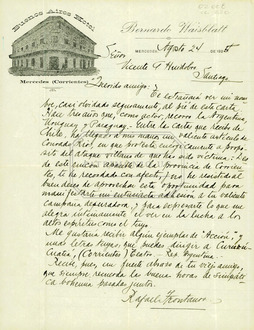 Buenos Aires Hotel
Mercedes (Corrientes)
Bernardo Waisblatt
MERCEDES, Agosto 24 de 1925
Señor
Vicente G Huidobro,
Santiago
Querido amigo:
Te extrañará ver mi nom-
bre, casi olvidado seguramente, al pie de esta carta.
Hace tres años que, como actor, recorro la Argentina,
Uruguay y Paraguay. Entre la carta que recibo de
Chile, ha llegado a mis manos un valiente artículo de
Conrado Ríos, en que protesta enérgicamente a propó-
sito del ataque villano de que has sido víctima. Des-
de este rincón apartado de la provincia de Corrien-
tes, te he recordado con afecto, y no he resistido al
buen deseo de aprovechar esta oportunidad para
manifestarte mi entusiasta adhesión a tu valiente
campaña depuradora, y para repetirte lo que me
alegra íntimamente el ver en la lucha a los
altos espíritus como el tuyo.
Me gustaría recibir algún ejemplar de "Acción" y
unas letras tuyas, que puedes dirigir a Curuzú-
Cuatiá, (Corrientes) Rep. Argentina.
Recibe, pues, un fuerte abrazo de tu viejo amigo,
que siempre recuerda las buenas horas de simpáti-
ca bohemia pasadas juntos.
Rafael Frontaura